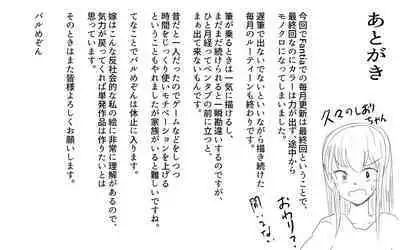 あとがき
今回でFantiaでの毎月更新は最終回ということで、
最終回なのにカラーは力が出ず、途中から
モノクロになってしまいました。
遅筆で出ない出ないといいながら描き続けた
毎月のルーティーンも終わりです。
筆が乗るときは一気に描けるし、
まだまだ続けられると一瞬勘違いするのですが、
ひと月経ってペンタブの前に立つと、
まぁ出て来ないもんです。
昔だと一人だったのでゲームなどをしつつ
時間をじっくり使いモチベーションを上げる
ということもやれましたが家族がいると難しいですね。
てなことでパルめぞんは休止に入ります。
嫁はこんな反社会的な私の絵に非常に理解があるので、
気力が戻ってくれば単発作品は作りたいとは
思っています。
そのときはまた皆様よろしくお願いします。
パルめぞん
久々のしおりちゃん
おわり?
聞くな!